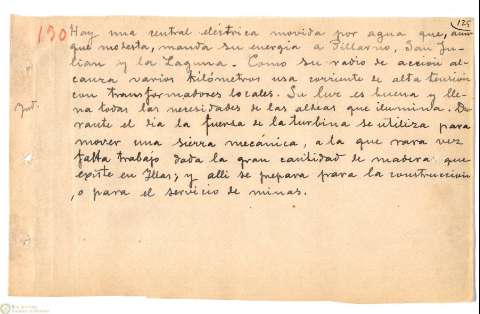 125
130 Hay una central eléctrica movida por agua que, aun
que modesta, manda su energia a Pillarno, San Ju-
lian y la Laguna. Como su radio de acción al-
canza varios kilómetros usa corriente de alta tensión
con transformadores locales. Su luz es buena y lle-
na todas las necesidades de las aldeas que ilumina. Du-
rante el dia la fuerza de la turbina se utiliza para
mover una sierra mecánica, a la que rara vez
falta trabajo dada la gran cantidad de madera que
existe en Illas; y alli se prepara para la construccion
, o para el servicio de minas.